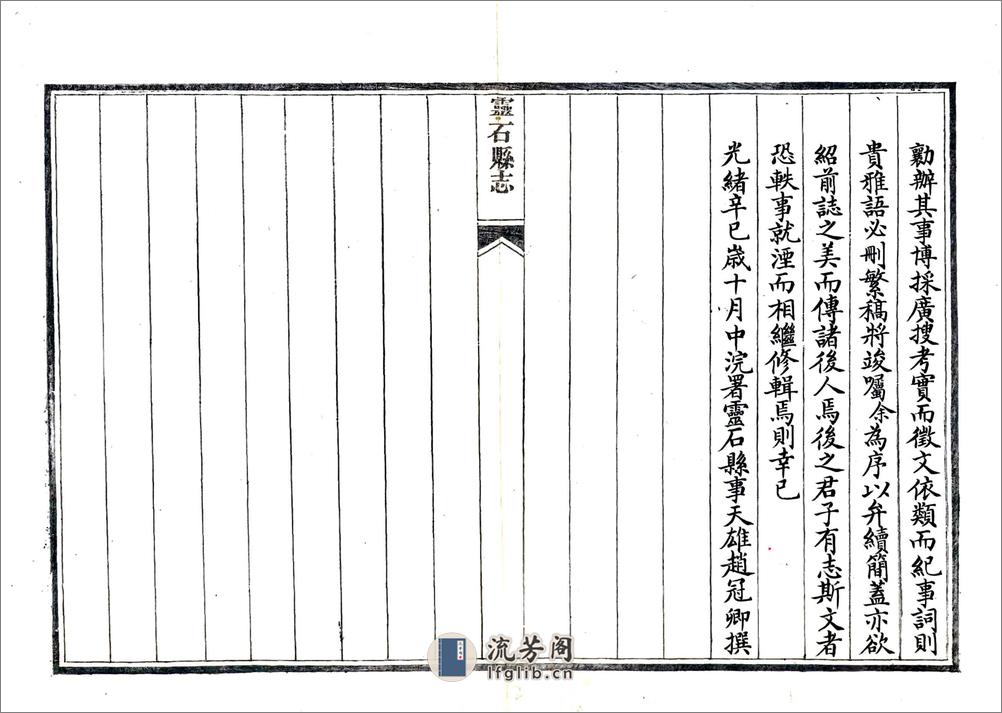 勷辦其事博採廣搜考實而徵文依類而紀事詞則
貴雅語必刪繁稿將竣囑余為序以弁續簡蓋亦欲
紹前誌之美而傳諸後人焉後之君子有志斯文者
恐軼事就湮而相繼修輯焉則幸已
光緒辛巳歲十月中浣署靈石縣事天雄趙冠卿撰
靈石縣志
流芳阁
lfglib.cn